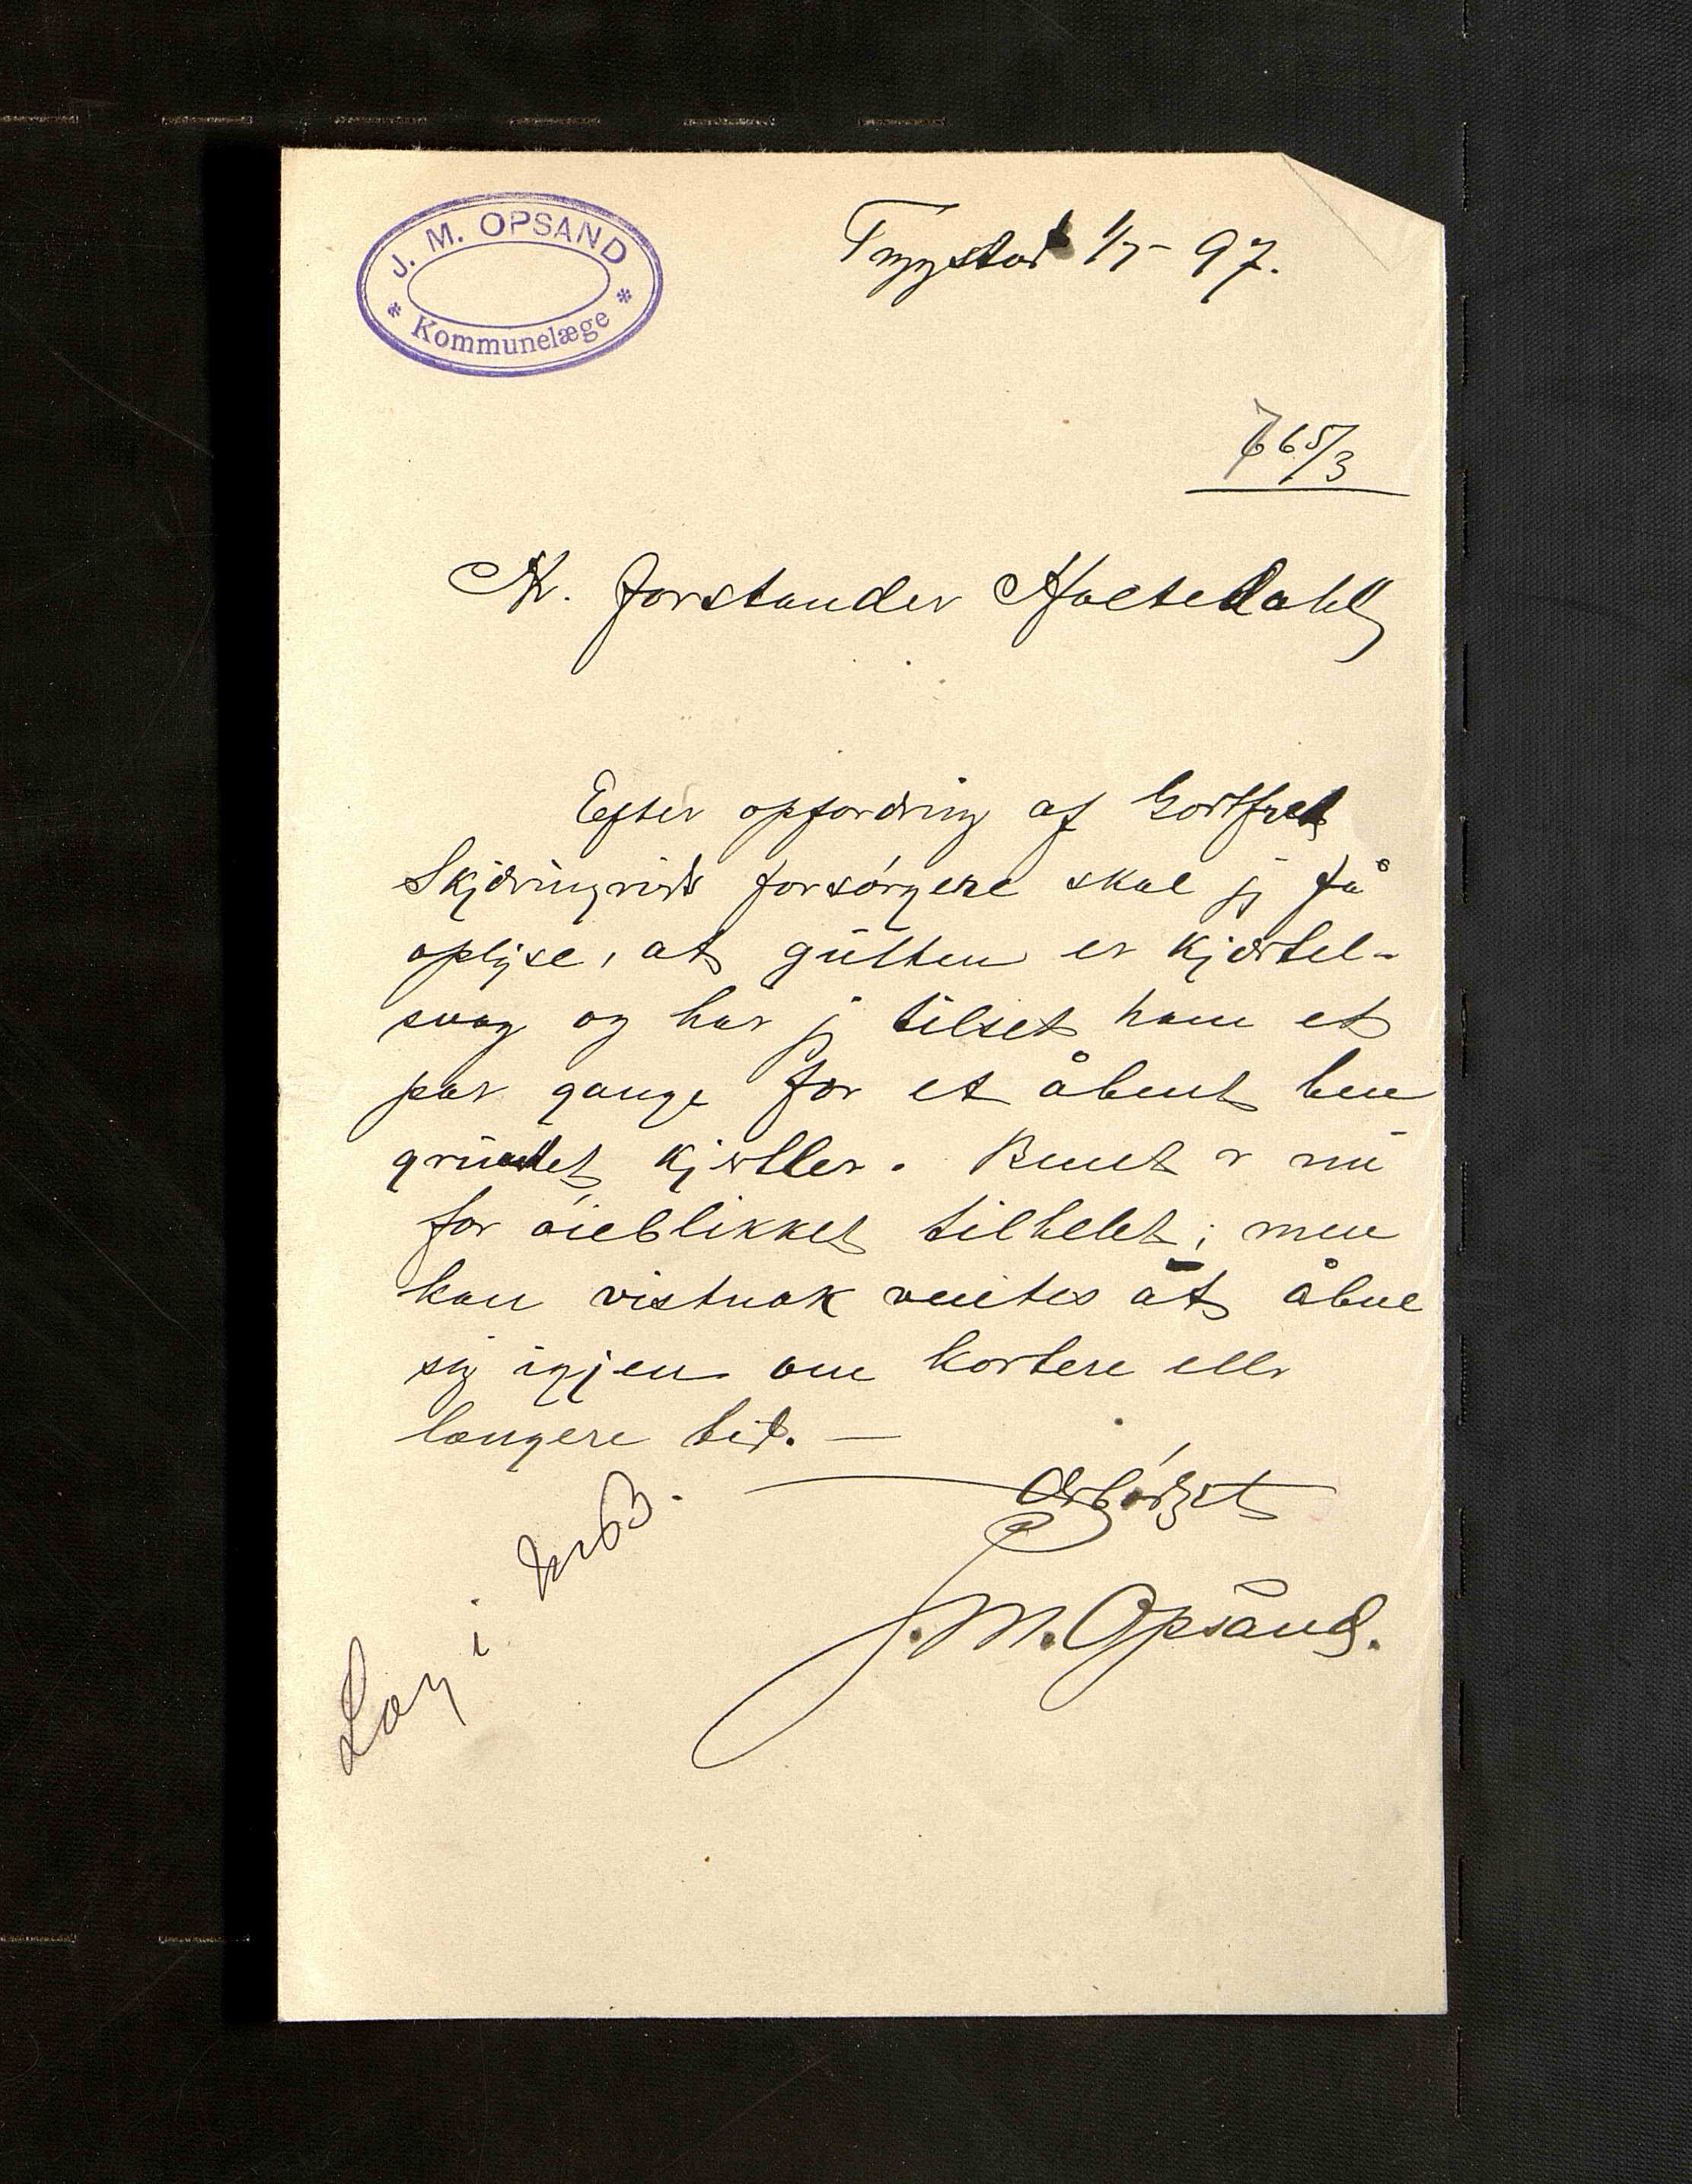 J. M. OPSAND
* Kommunelæge *
Trygstad 1/7- 97.
765/3
Hr. forstander Holtedahl
Efter opfordring af Gottfred
forsørgere skal jeg få
oplyse, at gutten er kjertel-
svag og har jeg tilset ham et
par gange for et åbent ben
grundet kjertler. Benet er nu
for øieblikket tilhelet; men
kan vistnok ventes at åbne
sig igjen om kortere eller
længere tid. —
Ærbødigst
J. M. Opsand.
Læg i